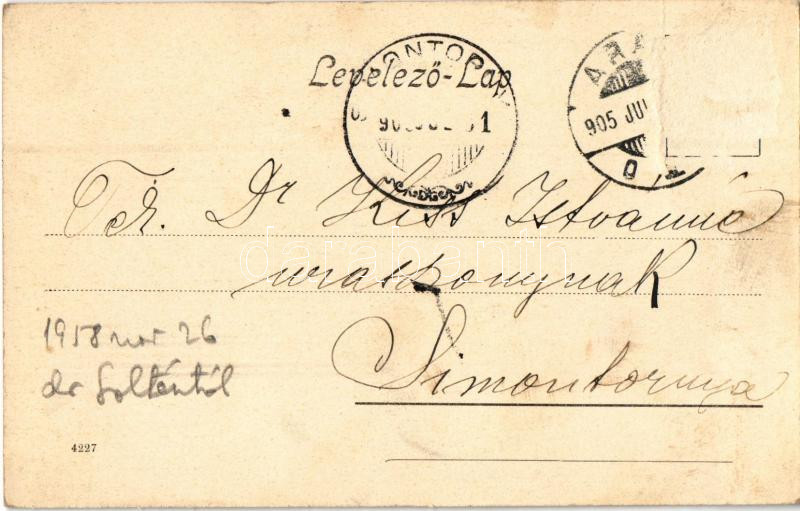 Levelező-Lap
ONTOR
905 JU
1
ARA
905 JUL
Tek. Dr Kiss Istvánné
uraszonynak
Simontornya
1958 nov 26
dr Solténtól
4227
darabanth